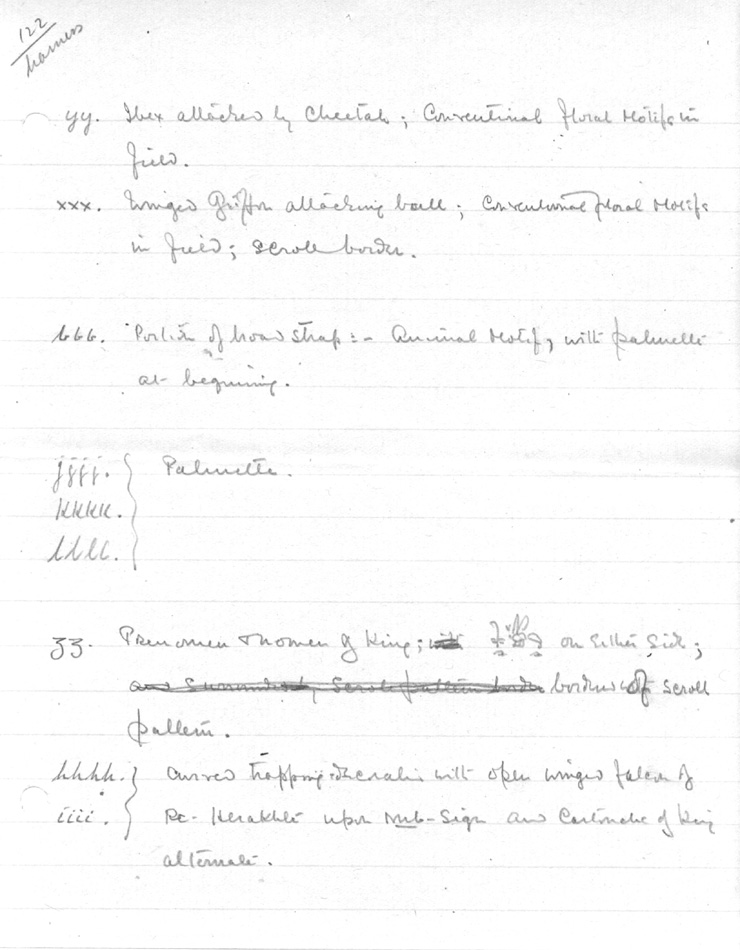 122
harness
yy. Ibex attacked by Cheetah; Conventional floral Motifs in
field.
xxx. Winged Griffon attacking bull; Conventional floral Motifs
in field; scroll border.
bbb. Portion of broad strap:- Animal Motif, with palmette
at beginning.
jjjj. Palmette.
kkkk.
llll.
zz. Prenomen & nomen of King; on either side;
and Surrounded by Scroll pattern border borders of scroll
pattern.
hhhh. Curved trapping: decoration with open winged falcon of
iiii. Re-Herakhte upon nub-sign and Cartouche of King
alternate.